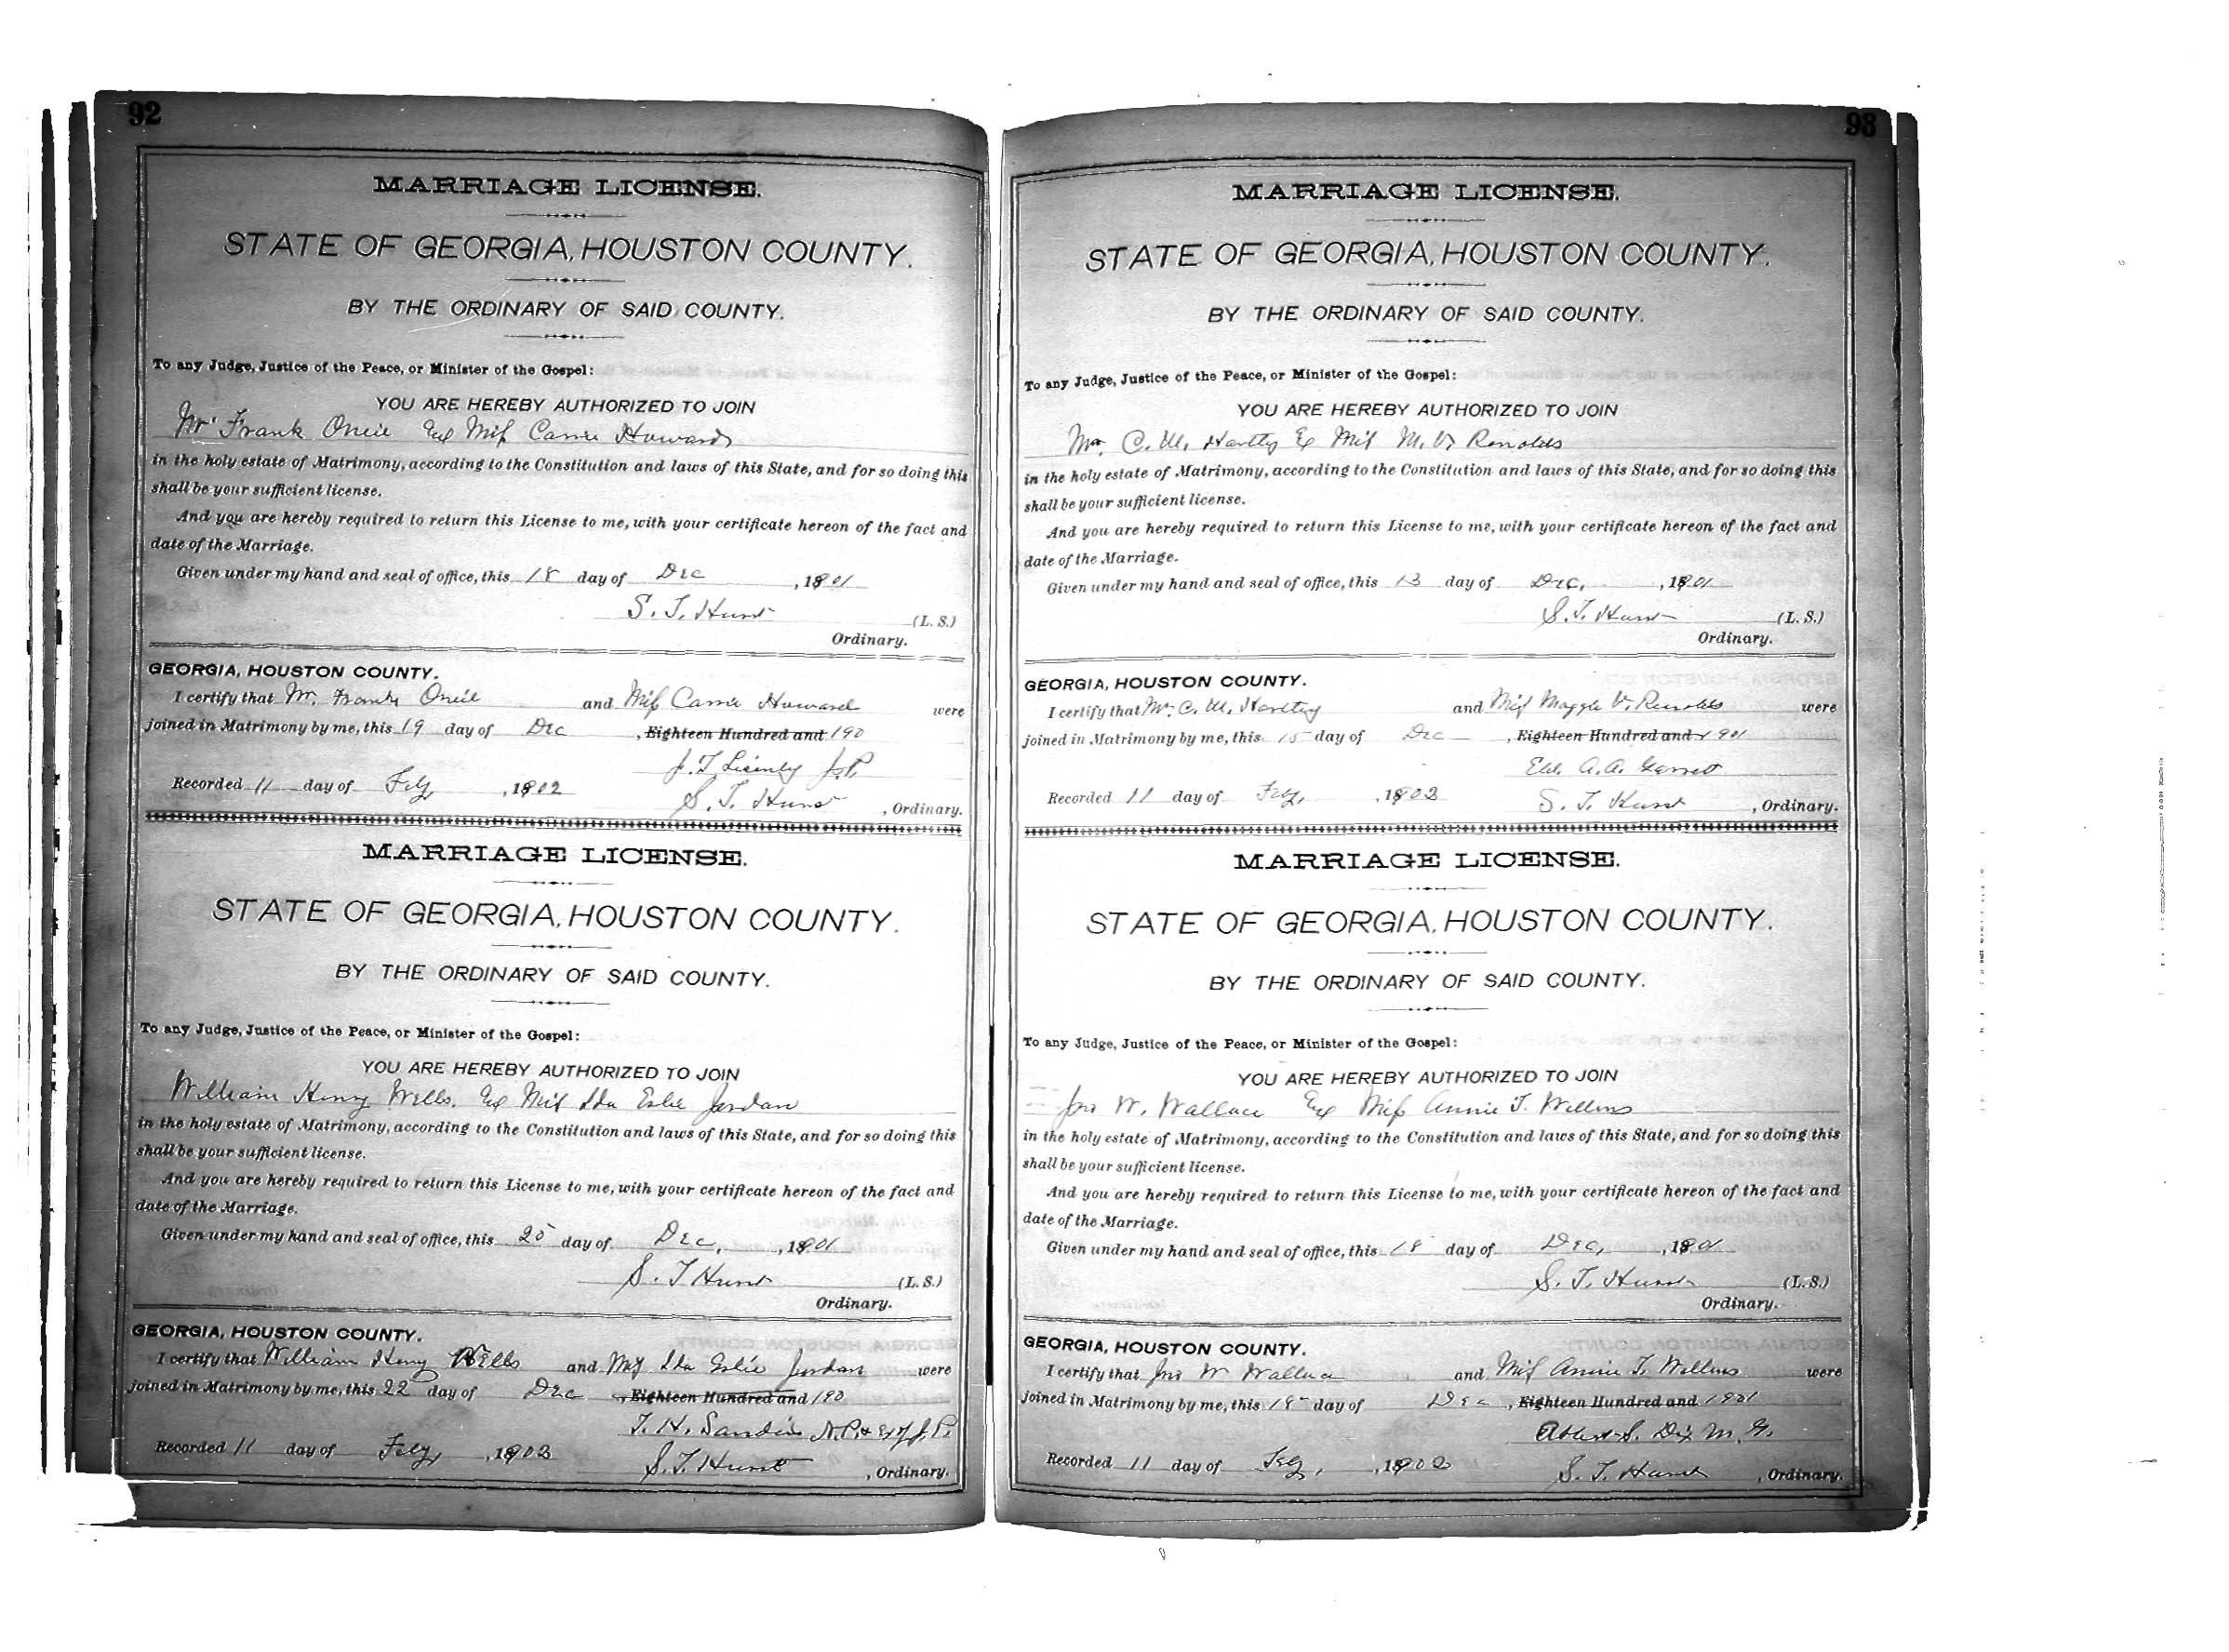 92
MARRIAGE LICENSE.
STATE OF GEORGIA, HOUSTON COUNTY.
BY THE ORDINARY OF SAID COUNTY.
To any Judge, Justice of the Peace, or Minister of the Gospel:
YOU ARE HEREBY AUTHORIZED TO JOIN
Mr Frank Oneil & Miss Carrie Howard
in the holy estate of Matrimony, according to the Constitution and laws of this State, and for so doing this
shall be your sufficient license.
And you are hereby required to return this License to me, with your certificate hereon of the fact and
date of the Marriage.
Given under my hand and seal of office, this 18 day of Dec, 1901
S. T. Hurst (L. S.)
Ordinary.
GEORGIA, HOUSTON COUNTY.
I certify that Mr. Frank Oneil and Miss Carrie Howard were
joined in Matrimony by me, this 19 day of Dec, Eighteen Hundred and 190
J. T. J.P.
Recorded 11 day of Feby, 1902 S. T. Hurst, Ordinary.
MARRIAGE LICENSE.
STATE OF GEORGIA, HOUSTON COUNTY.
BY THE ORDINARY OF SAID COUNTY.
To any Judge, Justice of the Peace, or Minister of the Gospel:
YOU ARE HEREBY AUTHORIZED TO JOIN
William Henry Wells. & Miss Ida Eslie Jordan
in the holy estate of Matrimony, according to the Constitution and laws of this State, and for so doing this
shall be your sufficient license.
And you are hereby required to return this License to me, with your certificate hereon of the fact and
date of the Marriage.
Given under my hand and seal of office, this 20 day of Dec., 1901
S. T Hurst (L. S.)
Ordinary.
GEORGIA, HOUSTON COUNTY.
I certify that William Henry Wells and Miss Ida Eslie Jordan were
joined in Matrimony by me, this 22 day of Dec, Eighteen Hundred and 190
T. H. N.P. & Ex of J.P.
Recorded 11 day of Feby, 1902 S. T. Hurst, Ordinary.
93
MARRIAGE LICENSE.
STATE OF GEORGIA, HOUSTON COUNTY.
BY THE ORDINARY OF SAID COUNTY.
To any Judge, Justice of the Peace, or Minister of the Gospel:
YOU ARE HEREBY AUTHORIZED TO JOIN
Mr. C. M. Hartly & Miss M. V. Renolds
in the holy estate of Matrimony, according to the Constitution and laws of this State, and for so doing this
shall be your sufficient license.
And you are hereby required to return this License to me, with your certificate hereon of the fact and
date of the Marriage.
Given under my hand and seal of office, this 13 day of Dec., 1901
S. T. Hurst (L. S.)
Ordinary.
GEORGIA, HOUSTON COUNTY.
I certify that Mr. C. M. Hartley and Miss Maggie V. Renolds were
joined in Matrimony by me, this 15 day of Dec, Eighteen Hundred and 1901
Eld. A. A. Garrett
Recorded 11 day of Feby, 1902 S. T. Hurst, Ordinary.
MARRIAGE LICENSE.
STATE OF GEORGIA, HOUSTON COUNTY.
BY THE ORDINARY OF SAID COUNTY.
To any Judge, Justice of the Peace, or Minister of the Gospel:
YOU ARE HEREBY AUTHORIZED TO JOIN
Jno W. Wallace & Miss Annie T. Wellons
in the holy estate of Matrimony, according to the Constitution and laws of this State, and for so doing this
shall be your sufficient license.
And you are hereby required to return this License to me, with your certificate hereon of the fact and
date of the Marriage.
Given under my hand and seal of office, this 18 day of Dec, 1901
S. T. Hurst (L. S.)
Ordinary.
GEORGIA, HOUSTON COUNTY.
I certify that Jno W Wallace and Miss Annie T. Wellons were
joined in Matrimony by me, this 18 day of Dec, Eighteen Hundred and 1901
S. Dix M. G.
Recorded 11 day of Feby, 1902 S. T. Hurst, Ordinary.